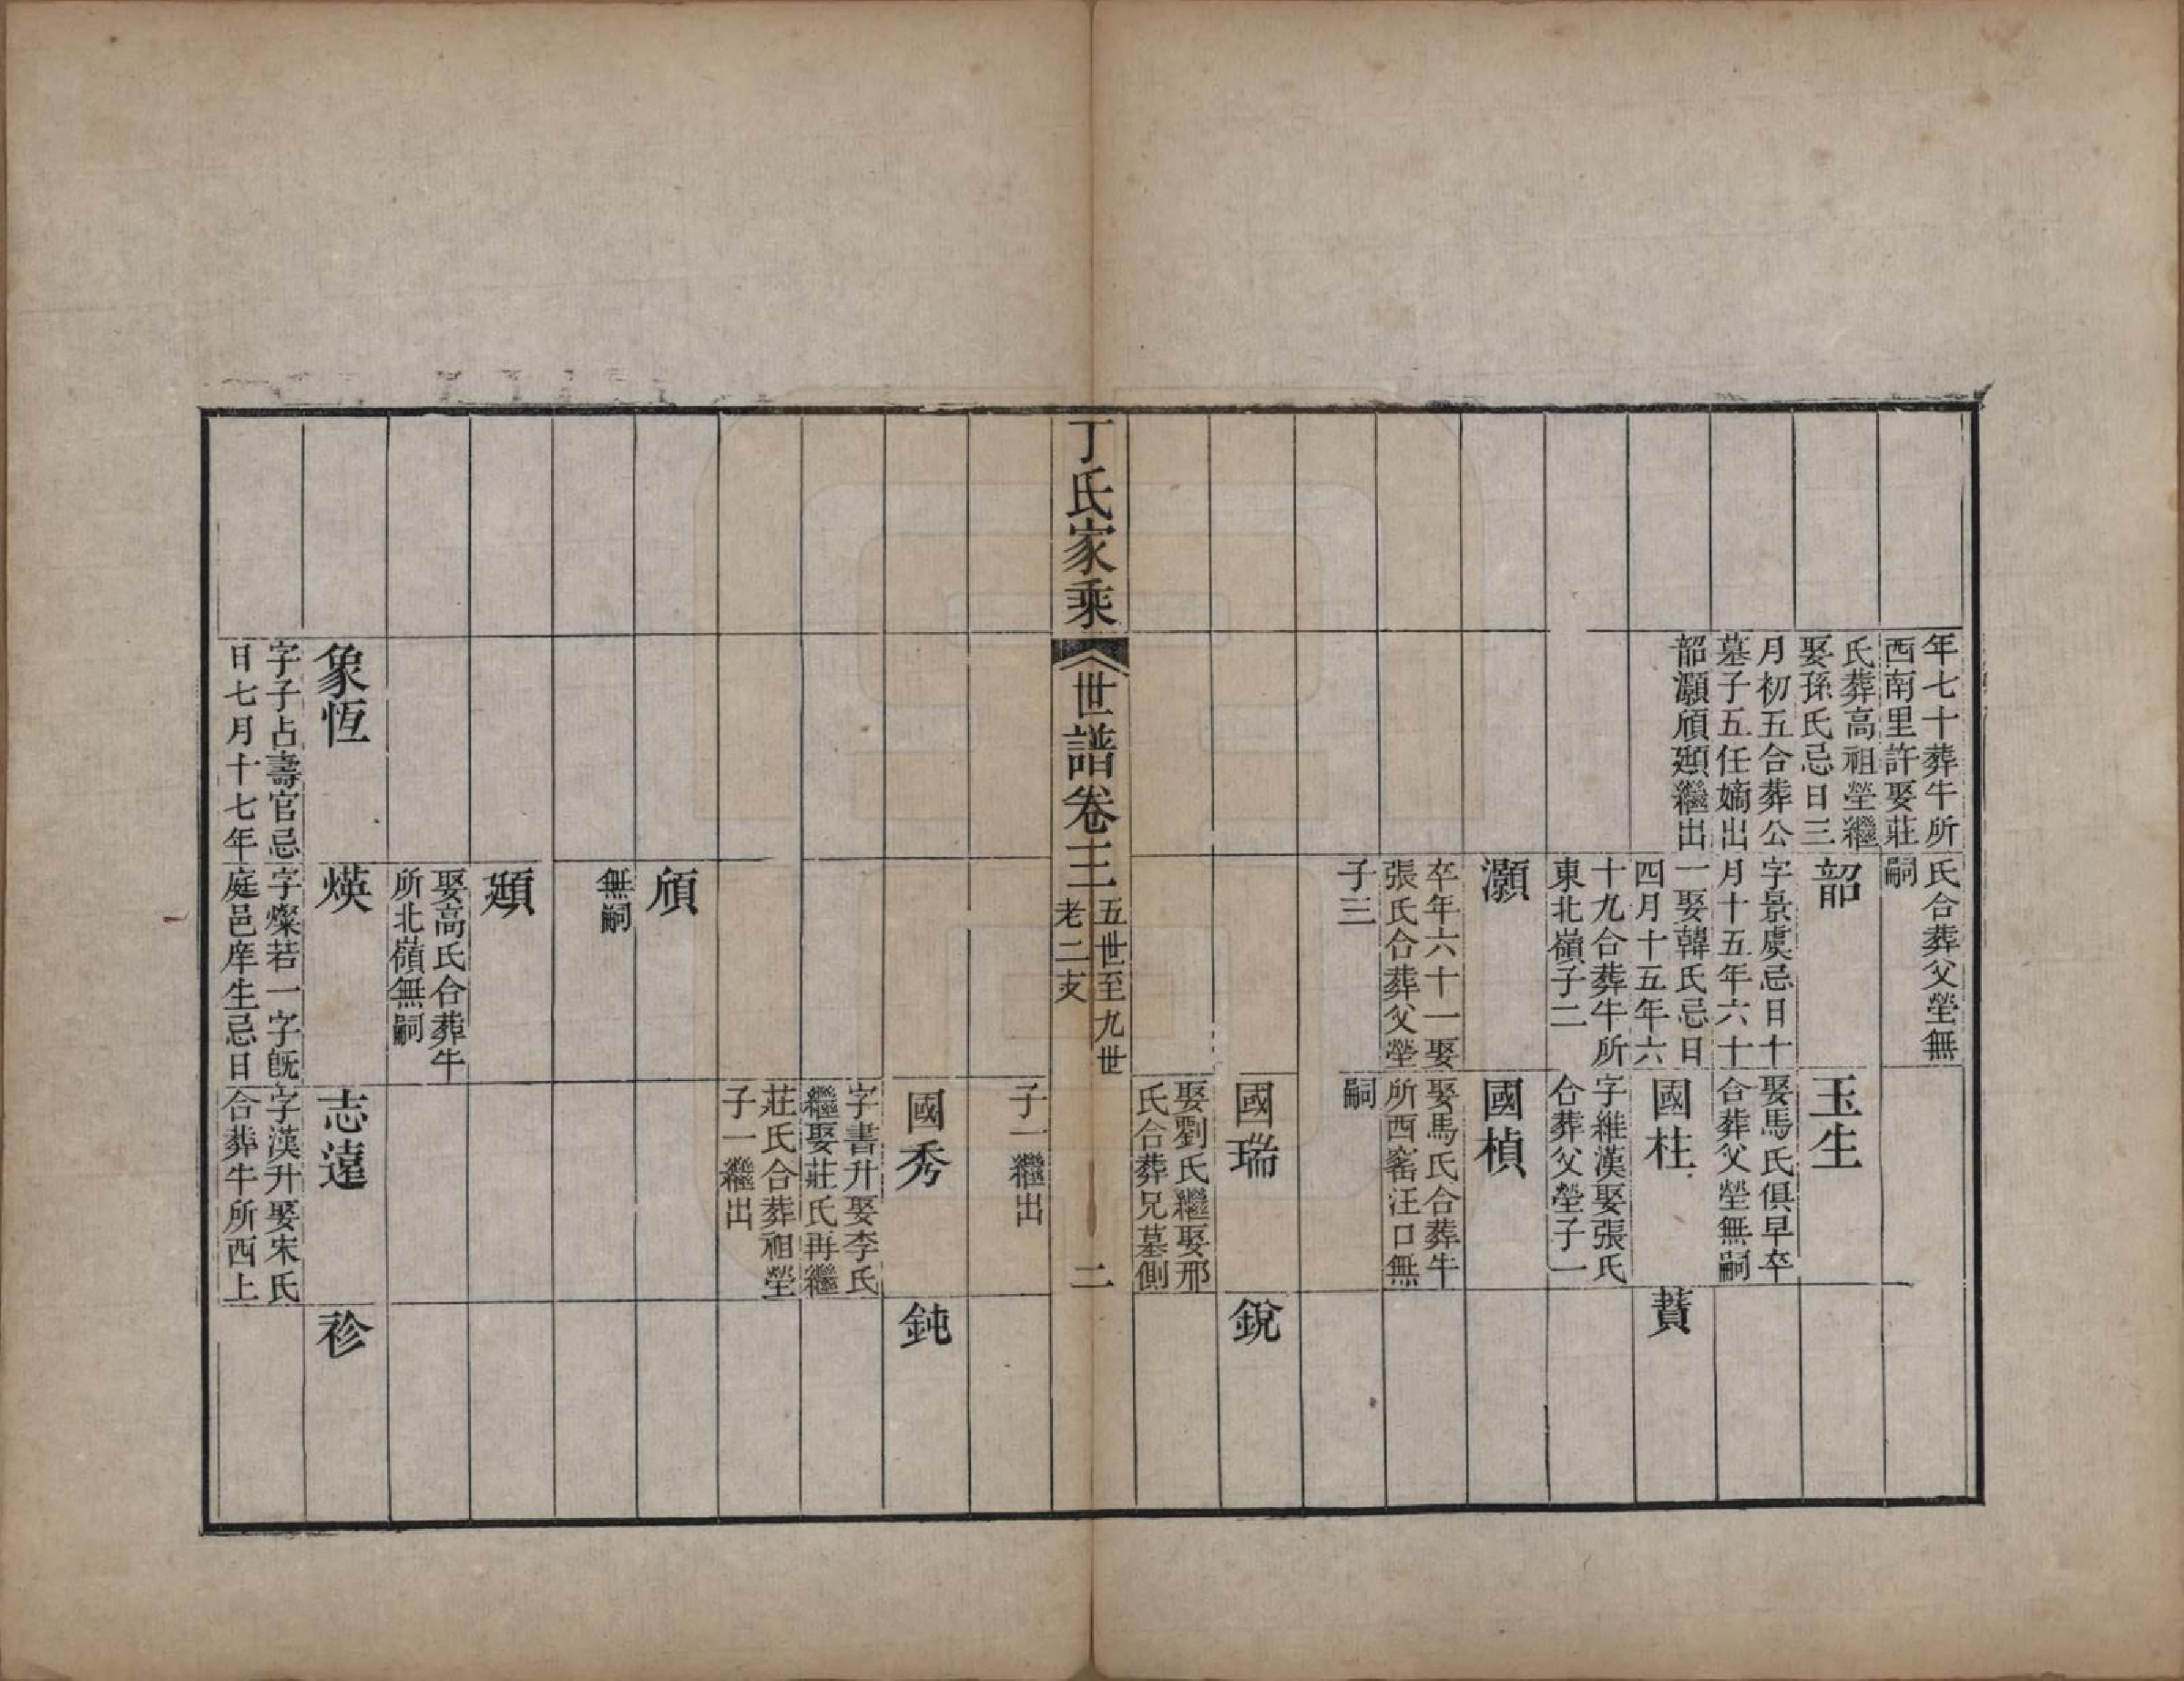 年七十葬牛所
西南里許娶莊
氏葬高祖塋繼
娶孫氏忌日三
月初五合葬公
墓子五任嫡出
韶灝頎頲繼出
氏合葬父塋無
嗣
韶
字景虞忌日十
月十五年六十
一娶韓氏忌日
四月十五年六
十九合葬牛所
東北嶺子二
灝
卒年六十一娶
張氏合葬父塋
子三
玉生
娶馬氏俱早卒
合葬父塋無嗣
國柱
字維漢娶張氏
合葬父塋子一
國楨
娶馬氏合葬牛
所西窰汪口無
嗣
國瑞
娶劉氏繼娶邢
氏合葬兄墓側
蕡
銳
丁氏家乘
世譜卷三
五世至九世
老二支
二
頎
無嗣
頲
娶高氏合葬牛
所北嶺無嗣
子一繼出
國秀
字書升娶李氏
繼娶莊氏再繼
莊氏合葬祖塋
子一繼出
鈍
象恆
字子占壽官忌
日七月十七年
煐
字燦若一字旣
庭邑庠生忌日
志遠
字漢升娶宋氏
合葬牛所西上
袗